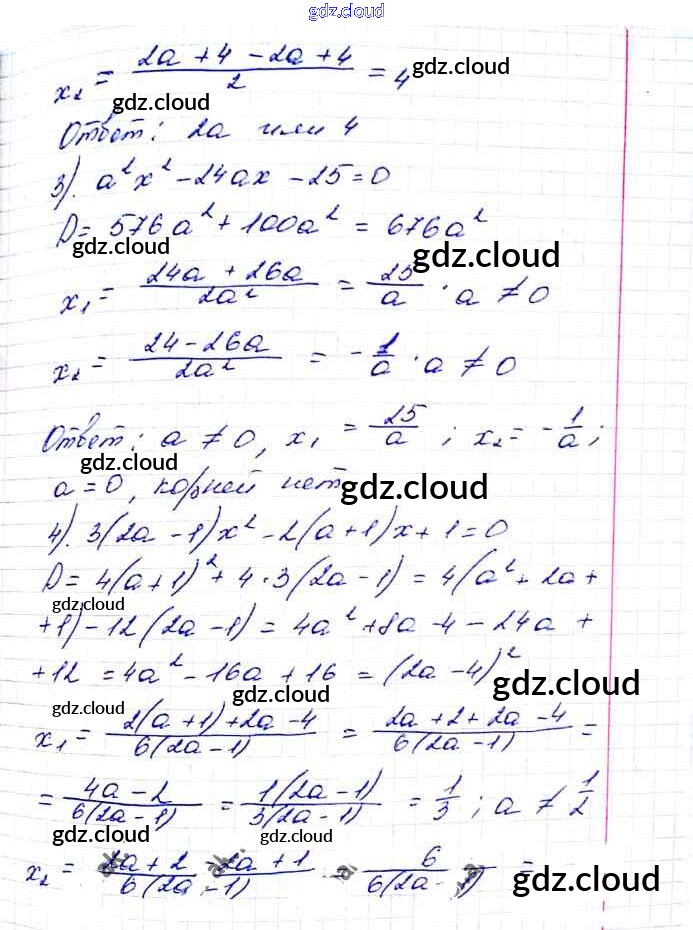 gdz.cloud
x₂ = (2a + 4 - 2a + 4)/2 = 4 gdz.cloud
gdz.cloud
Ответ: 2a или 4
3). a²x² - 24ax - 25 = 0
D = 576a² + 100a² = 676a²
gdz.cloud gdz.cloud
x₁ = (24a + 26a)/2a² = 25/a · a ≠ 0
x₂ = (24 - 26a)/2a² = -1/a · a ≠ 0
Ответ: a ≠ 0, x₁ = 25/a ; x₂ = -1/a ;
gdz.cloud
a = 0, корней нет gdz.cloud
4). 3(2a - 1)x² - 2(a + 1)x + 1 = 0
D = 4(a + 1)² + 4 · 3(2a - 1) = 4(a² + 2a +
gdz.cloud
+ 1) - 12(2a - 1) = 4a² + 8a - 4 - 24a +
+ 12 = 4a² - 16a + 16 = (2a - 4)²
gdz.cloud gdz.cloud gdz.cloud
x₁ = (2(a + 1) + 2a - 4)/6(2a - 1) = (2a + 2 + 2a - 4)/6(2a - 1) =
= (4a - 2)/6(2a - 1) = 1(2a - 1)/3(2a - 1) = 1/3 ; a ≠ 1/2
gdz.cloud gdz.cloud
x₂ = (2a + 2 - 2a + 1)/6(2a - 1) = 6/6(2a - 1) = gdz.cloud